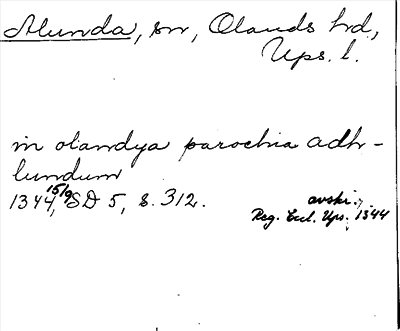 Alunda, sn, Olands hd,
Ups. l.
in olandya parochia adh-
lundum
1344 15/9, SD 5, s. 312.
avskr.
Reg. Eccl. Ups. 1344